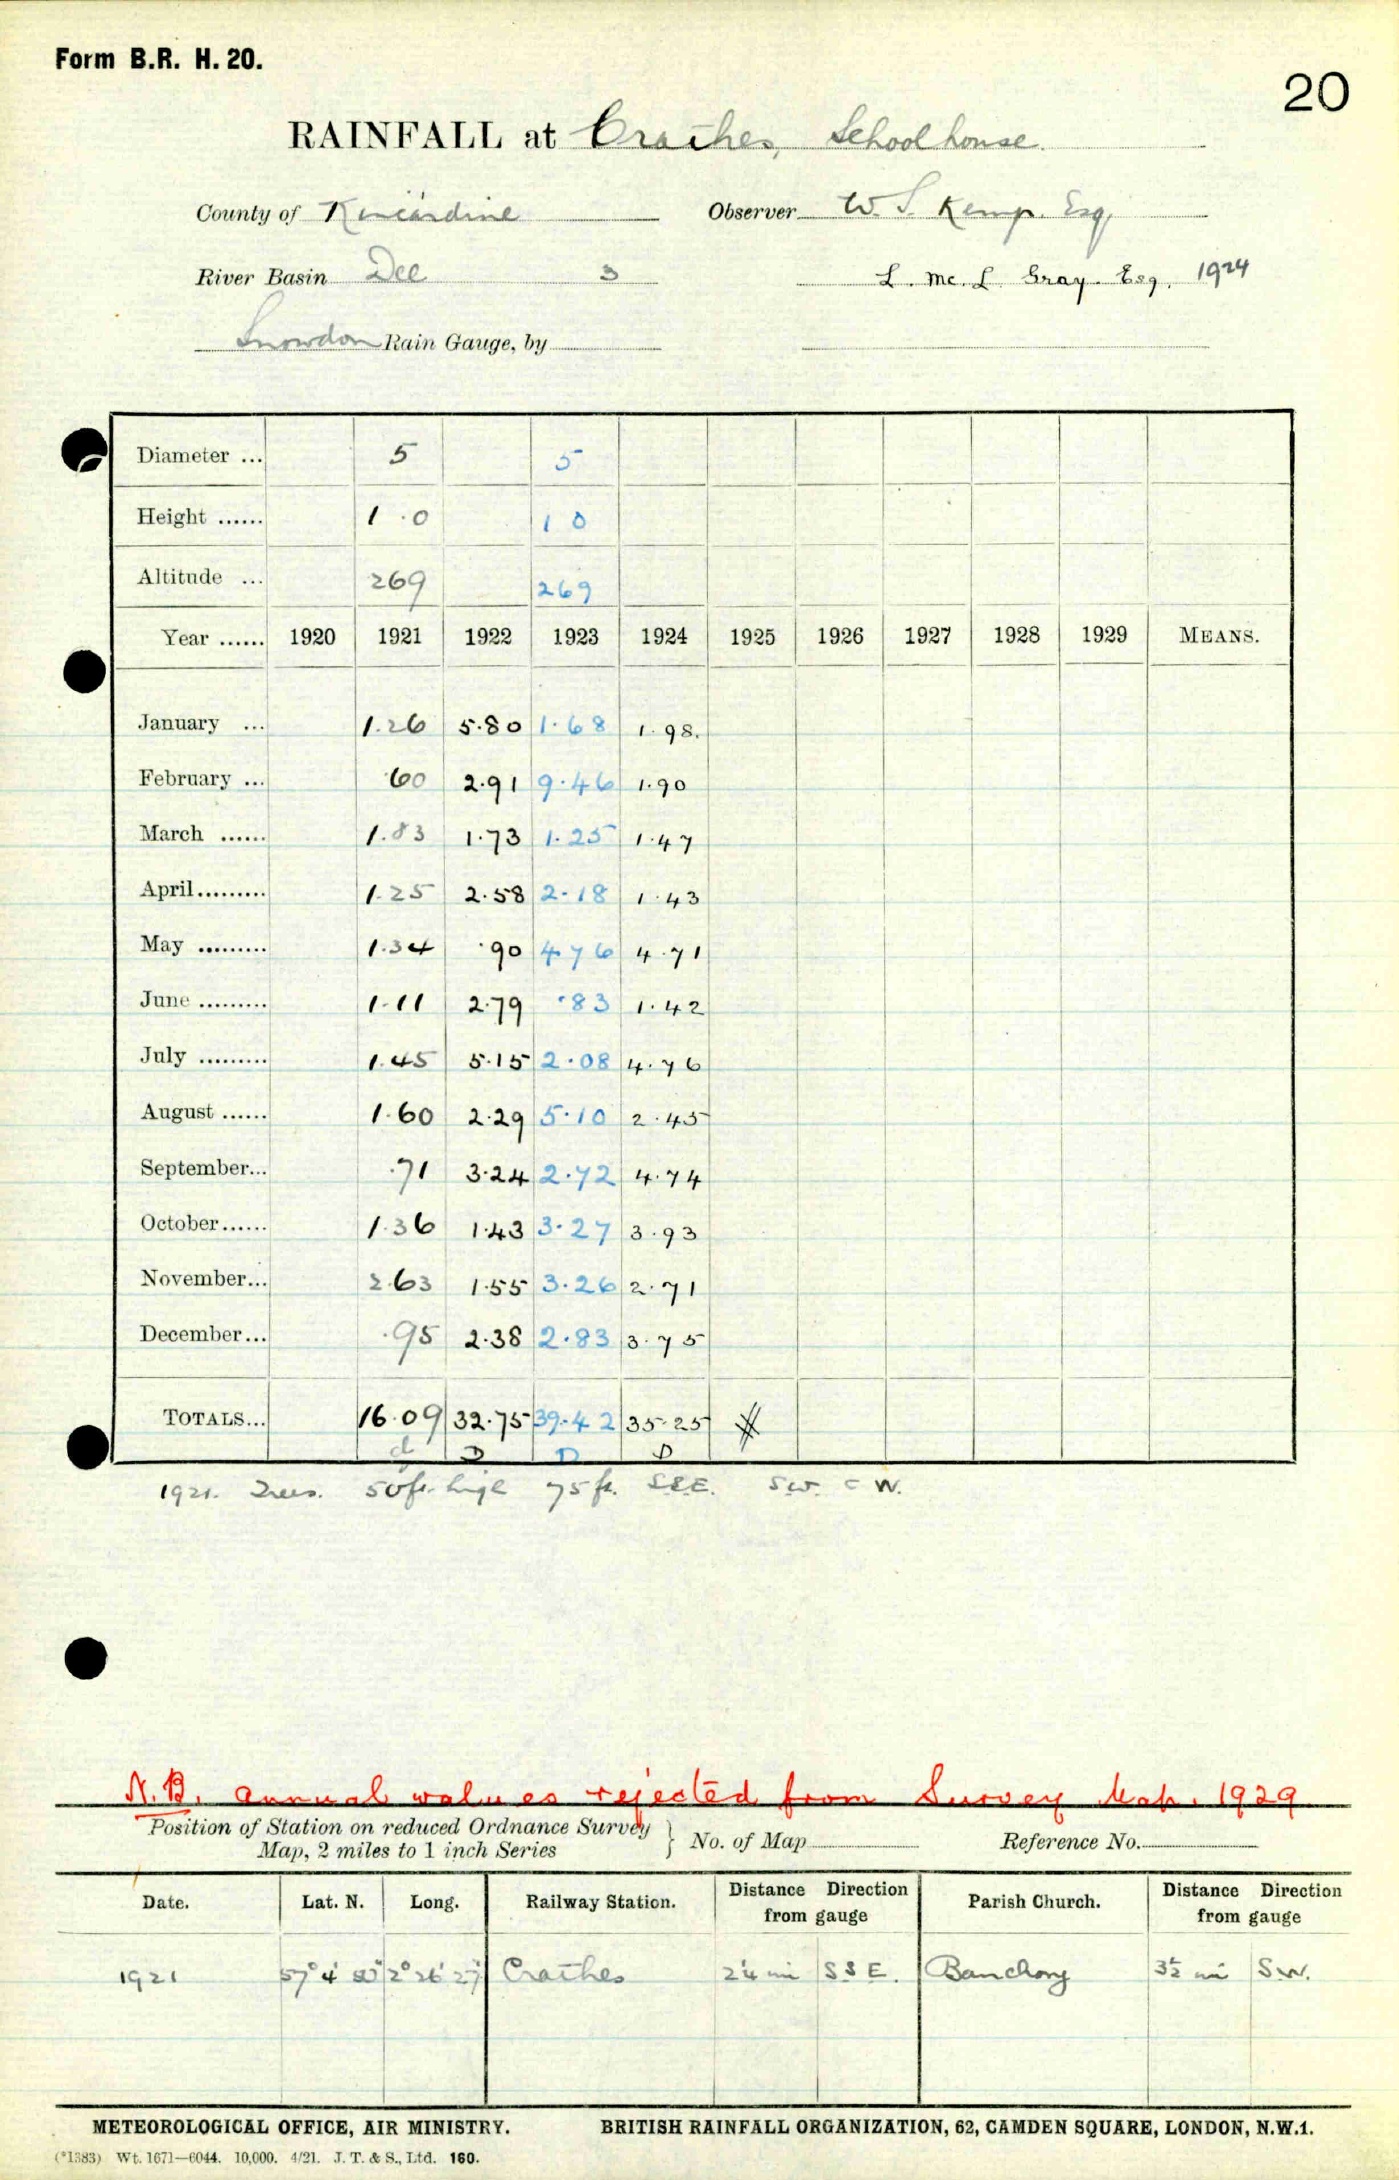 Form B.R. H. 20.
20
RAINFALL at Crathes, Schoolhouse.
County of Kincardine Observer W. S. Kemp. Esq,
River Basin Dee 3 L. Mc. L. Gray. Esq. 1924
Snowdon Rain Gauge, by
Diameter ... 5 5
Height ...... 1 . 0 1 0
Altitude ... 269 269
Year ...... 1920 1921 1922 1923 1924 1925 1926 1927 1928 1929 MEANS.
January ... 1.26 5.80 1.68 1.98.
February ... .60 2.91 9.46 1.90
March ...... 1.83 1.73 1.25 1.47
April......... 1.25 2.58 2.18 1.43
May ......... 1.34 .90 4.76 4.71
June ......... 1.11 2.79 .83 1.42
July ......... 1.45 5.15 2.08 4.76
August ...... 1.60 2.29 5.10 2.45
September... .71 3.24 2.72 4.74
October...... 1.36 1.43 3.27 3.93
November... 2.63 1.55 3.26 2.71
December... .95 2.38 2.83 3.75
TOTALS... 16.09 32.75 39.42 35.25
d D D D
1921. Trees. 50ft. high 75 ft. SSE. SW. W.
N.B. Annual values rejected from Survey Map. 1929
Position of Station on reduced Ordnance Survey
Map, 2 miles to 1 inch Series } No. of Map Reference No.
Date. Lat. N. Long. Railway Station. Distance Direction from gauge Parish Church. Distance Direction from gauge
1921 57° 4' 50" 2° 26' 27" Crathes 2¼ mi SSE. Banchory 3½ mi SW.
METEOROLOGICAL OFFICE, AIR MINISTRY. BRITISH RAINFALL ORGANIZATION, 62, CAMDEN SQUARE, LONDON, N.W.1.
(*1383) Wt. 1671—6044. 10,000. 4/21. J. T. & S., Ltd. 160.